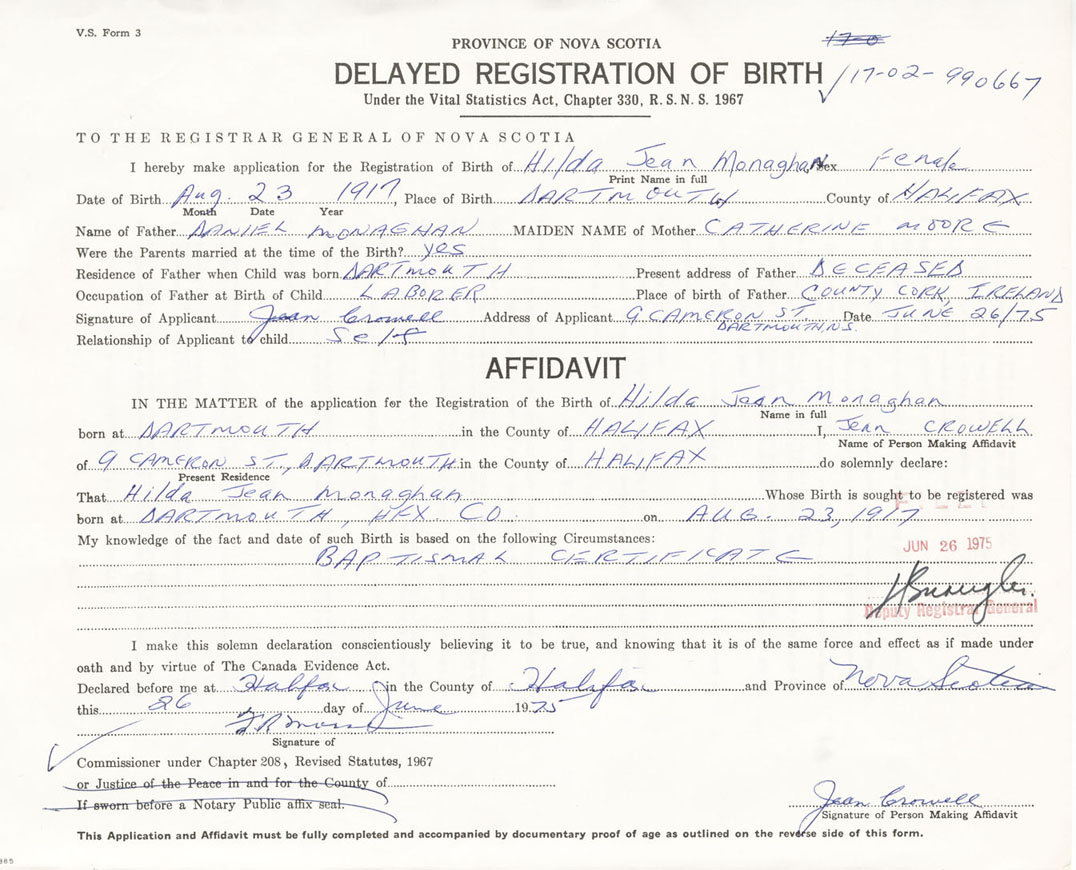 V.S. Form 3
PROVINCE OF NOVA SCOTIA
DELAYED REGISTRATION OF BIRTH 17-02-990667
Under the Vital Statistics Act, Chapter 330, R.S.N.S. 1967
TO THE REGISTRAR GENERAL OF NOVA SCOTIA
I hereby make application for the Registration of Birth of Hilda Jean Monaghan Sex Female
Print Name in full
Date of Birth Aug. 23 1917, Place of Birth DARTMOUTH County of HALIFAX
Month Date Year
Name of Father DANIEL MONAGHAN MAIDEN NAME of Mother CATHERINE MOORE
Were the Parents married at the time of the Birth? yes
Residence of Father when Child was born DARTMOUTH Present address of Father DECEASED
Occupation of Father at Birth of Child LABORER Place of birth of Father COUNTY CORK, IRELAND
Signature of Applicant Jean Crowell Address of Applicant 9 CAMERON ST. DARTMOUTH, N.S. Date JUNE 26/75
Relationship of Applicant to child Self
AFFIDAVIT
IN THE MATTER of the application for the Registration of the Birth of Hilda Jean Monaghan
Name in full
born at DARTMOUTH in the County of HALIFAX I, Jean CROWELL
Name of Person Making Affidavit
of 9 CAMERON ST., DARTMOUTH in the County of HALIFAX do solemnly declare:
Present Residence
That Hilda Jean Monaghan Whose Birth is sought to be registered was
born at DARTMOUTH, HFX. CO. on AUG. 23, 1917
My knowledge of the fact and date of such Birth is based on the following Circumstances:
BAPTISMAL CERTIFICATE
JUN 26 1975
Deputy Registrar General
I make this solemn declaration conscientiously believing it to be true, and knowing that it is of the same force and effect as if made under
oath and by virtue of The Canada Evidence Act.
Declared before me at Halifax in the County of Halifax and Province of Nova Scotia
this 26 day of June 1975
Signature of
Commissioner under Chapter 208, Revised Statutes, 1967
or Justice of the Peace in and for the County of
If sworn before a Notary Public affix seal.
Jean Crowell
Signature of Person Making Affidavit
This Application and Affidavit must be fully completed and accompanied by documentary proof of age as outlined on the reverse side of this form.